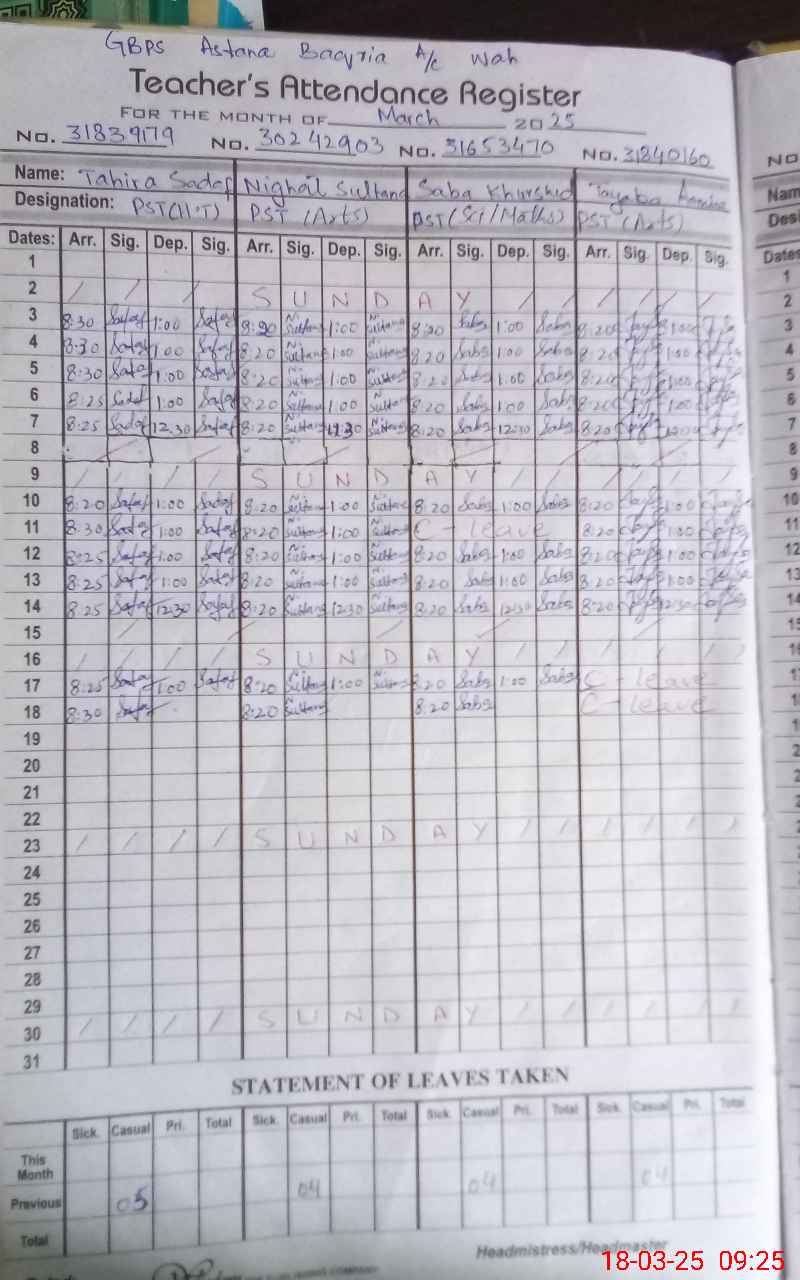 GBPS Astana Baqria A/c Wah
Teacher's Attendance Register
FOR THE MONTH OF March 2025
No. 31839179 No. 30242903 No. 31653470 No. 31840160 No
Name: Tahira Sadaf Nighat Sultana Saba Khurshid Tayaba Nam
Designation: PST(H.T) PST (Arts) PST(Sci/Maths) PST (Arts) Des
Dates: Arr. Sig. Dep. Sig. Arr. Sig. Dep. Sig. Arr. Sig. Dep. Sig. Arr. Sig. Dep. Sig. Dates
1 1
2 / / / S U N D A Y / / / / / 2
3 8:30 Sadaf 1:00 Sadaf 8:20 Sultana 1:00 Sultana 8:20 Saba 1:00 Saba 8:20 1:00 3
4 8:30 Sadaf 1:00 Sadaf 8:20 Sultana 1:00 Sultana 8:20 Saba 1:00 Saba 8:20 1:00 4
5 8:30 Sadaf 1:00 Sadaf 8:20 Sultana 1:00 Sultana 8:20 Saba 1:00 Saba 8:20 1:00 5
6 8:25 Sadaf 1:00 Sadaf 8:20 Sultana 1:00 Sultana 8:20 Saba 1:00 Saba 8:20 1:00 6
7 8:25 Sadaf 12:30 Sadaf 8:20 Sultana 12:30 Sultana 8:20 Saba 12:30 Saba 8:20 12:30 7
8 8
9 / / / / S U N D A Y / / / / / / 9
10 8:20 Sadaf 1:00 Sadaf 8:20 Sultana 1:00 Sultana 8:20 Saba 1:00 Saba 8:20 1:00 10
11 8:30 Sadaf 1:00 Sadaf 8:20 Sultana 1:00 Sultana C-leave 8:20 1:00 11
12 8:25 Sadaf 1:00 Sadaf 8:20 Sultana 1:00 Sultana 8:20 Saba 1:00 Saba 8:20 1:00 12
13 8:25 Sadaf 1:00 Sadaf 8:20 Sultana 1:00 Sultana 8:20 Saba 1:00 Saba 8:20 1:00 13
14 8:25 Sadaf 12:30 Sadaf 8:20 Sultana 12:30 Sultana 8:20 Saba 12:30 Saba 8:20 12:30 14
15
16 / / / / S U N D A Y / / / / / /
17 8:25 Sadaf 1:00 Sadaf 8:20 Sultana 1:00 Sultana 8:20 Saba 1:00 Saba C-leave
18 8:30 Sadaf 8:20 Sultana 8:20 Saba C-leave
19
20
21
22
23 / / / / S U N D A Y / / / / / /
24
25
26
27
28
29
30 / / / / S U N D A Y / / / / / /
31
STATEMENT OF LEAVES TAKEN
Sick. Casual Pri. Total Sick. Casual Pri. Total Sick. Casual Pri. Total Sick. Casual Pri. Total
This Month
Previous 05 04 04 04
Total
Headmistress/Headmaster
18-03-25 09:25